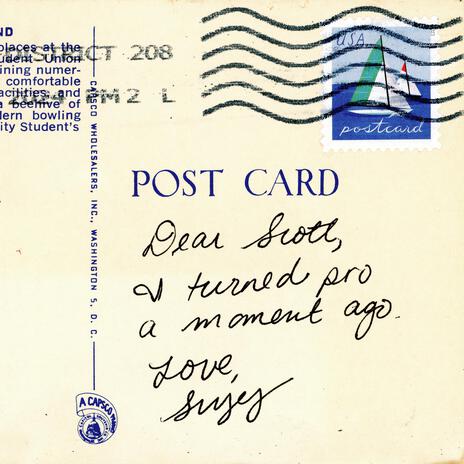 ND
places at the
udent Union
ining numer-
comfortable
acilities, and
a beehive of
dern bowling
ity Student's
DISTRICT 208
PM 2 L
USA
postcard
CAPSCO WHOLESALERS, INC., WASHINGTON 5, D. C.
POST CARD
Dear Scott,
I turned pro
a moment ago.
Love,
Suzy
A CAPSCO